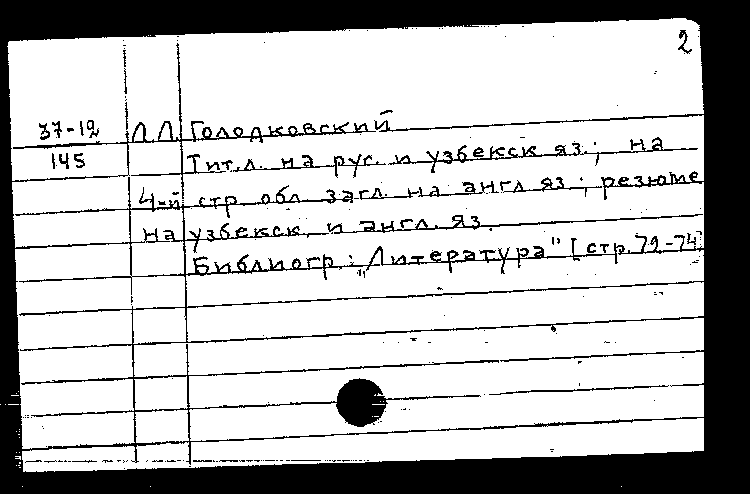 2
37-12 Л.Л. Голодковский
145 Тит.л. на рус. и узбекск яз.; на
4-й стр. обл. загл. на англ яз; резюме
на узбекск. и англ. яз.
Библиогр.: „Литература" [стр. 72-74]